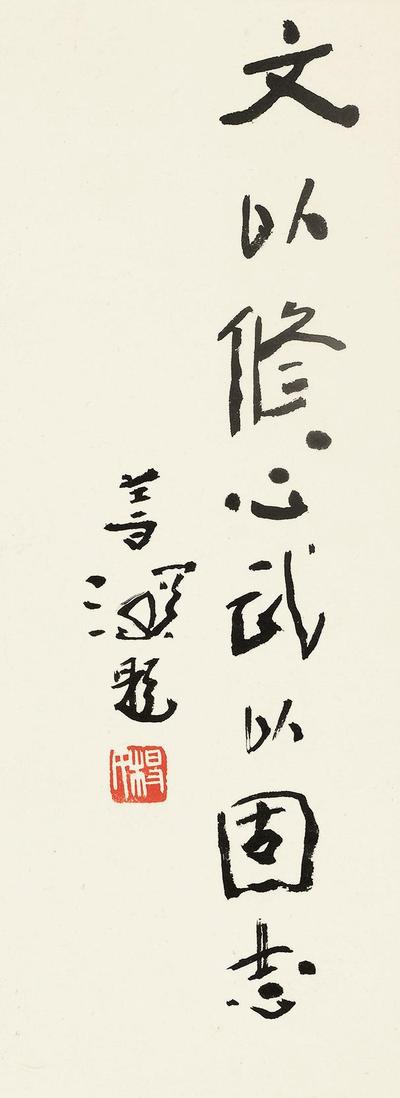 文以修心武以固志
善深題